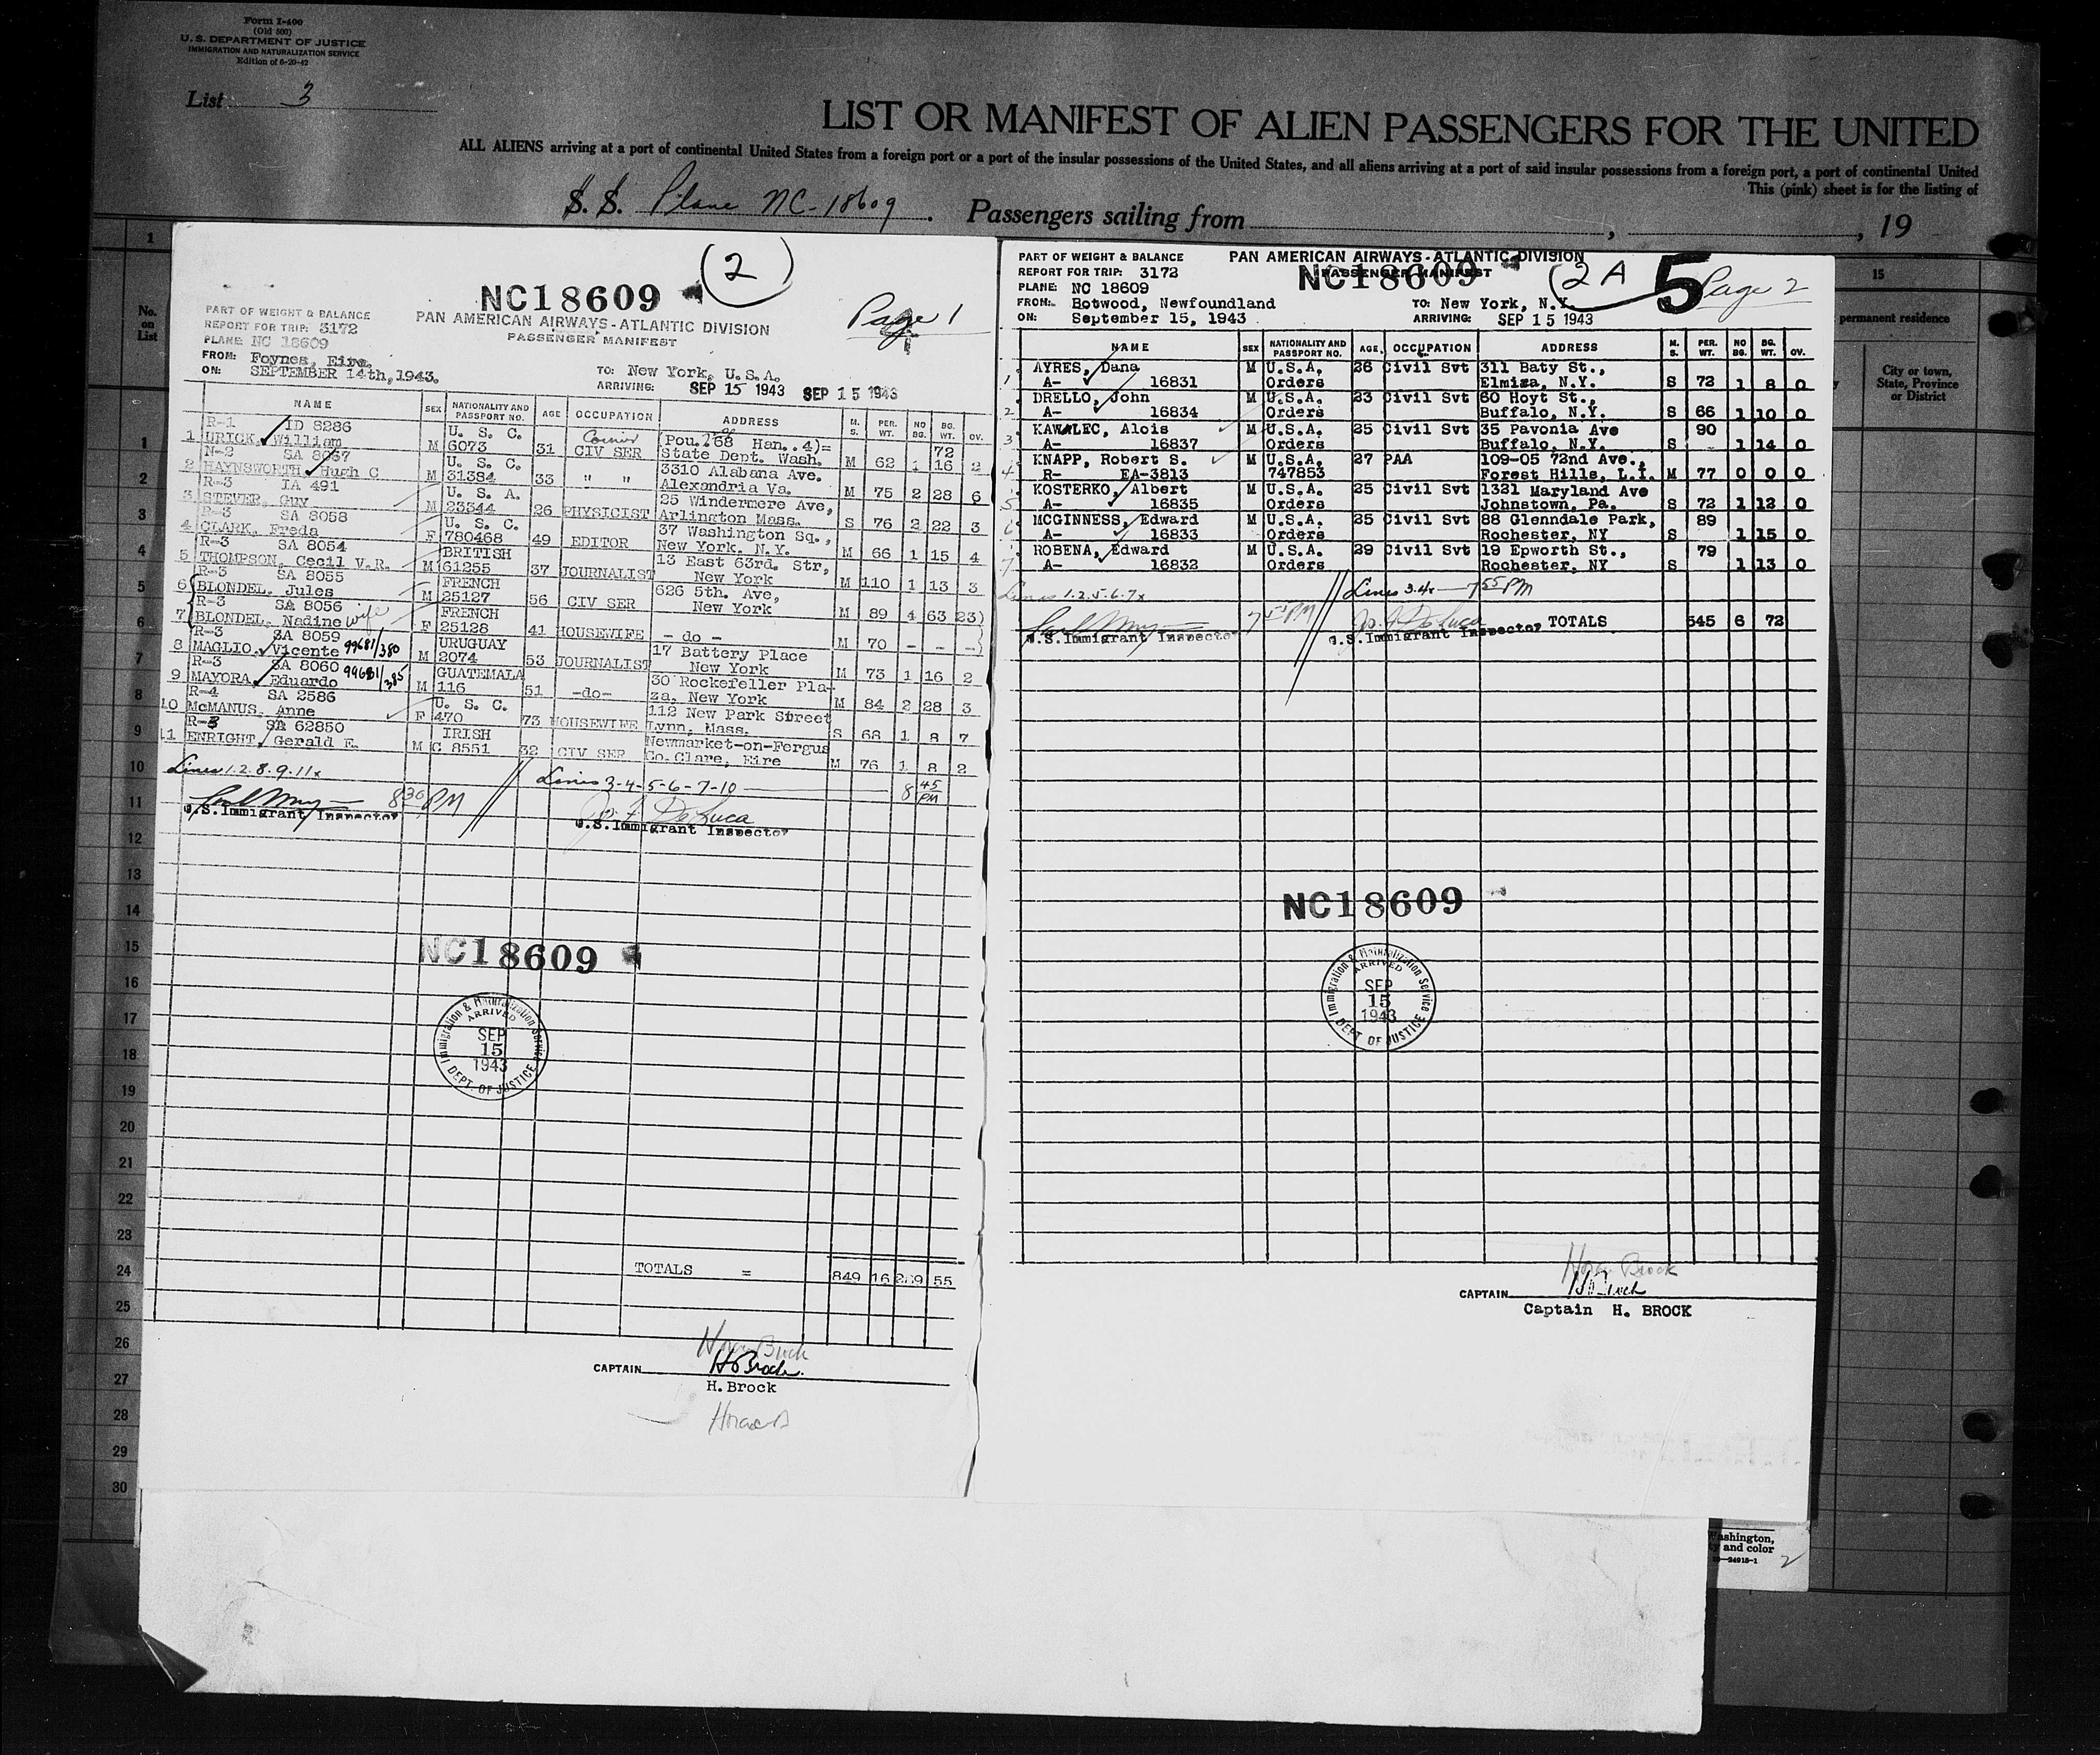 Form I-400
(Old 500)
U. S. DEPARTMENT OF JUSTICE
IMMIGRATION AND NATURALIZATION SERVICE
Edition of 6-20-42
List 3
LIST OR MANIFEST OF ALIEN PASSENGERS FOR THE UNITED
ALL ALIENS arriving at a port of continental United States from a foreign port or a port of the insular possessions of the United States, and all aliens arriving at a port of said insular possessions from a foreign port, a port of continental United
This (pink) sheet is for the listing of
S. S. Plane NC-18609. Passengers sailing from , , 19
1
No.
on
List
1
2
3
4
5
6
7
8
9
10
11
12
13
14
15
16
17
18
19
20
21
22
23
24
25
26
27
28
29
30
(2)
NC18609
Page 1
PART OF WEIGHT & BALANCE
REPORT FOR TRIP: 3172
PLANE: NC 18609
PAN AMERICAN AIRWAYS - ATLANTIC DIVISION
PASSENGER MANIFEST
FROM: Foynes, Eire.
ON: SEPTEMBER 14th, 1943.
TO: New York, U.S.A.
ARRIVING: SEP 15 1943 SEP 15 1943
NAME SEX NATIONALITY AND PASSPORT NO. AGE OCCUPATION ADDRESS M. S. PER. WT. NO BG. BG. WT. OV.
R-1 ID 8286 U. S. C. Courier (Pou. 68 Han..4)= 72
1 URICK, William M 6073 31 CIV SER State Dept. Wash. M 62 1 16 2
N-2 SA 8057 U. S. C. 3310 Alabana Ave.
2 HAYNSWORTH Hugh C M 31384 33 " " Alexandria Va. M 75 2 28 6
R-3 IA 491 U. S. A. 25 Windermere Ave,
3 STEVER, Guy M 23544 26 PHYSICIST Arlington Mass. S 76 2 22 3
R-3 SA 8058 U. S. C. 37 Washington Sq.,
4 CLARK, Freda F 780468 49 EDITOR New York, N.Y. M 66 1 15 4
R-3 SA 8054 BRITISH 13 East 63rd. Str,
5 THOMPSON, Cecil V.R. M 61255 37 JOURNALIST New York M 110 1 13 3
R-3 SA 8055 FRENCH 626 5th. Ave,
6 BLONDEL, Jules M 25127 56 CIV SER New York M 89 4 63 23)
R-3 SA 8056 FRENCH
7 BLONDEL, Nadine wife F 25128 41 HOUSEWIFE - do - M 70 - - -)
R-3 SA 8059 URUGUAY 17 Battery Place
8 MAGLIO, Vicente 99681/380 M 2074 53 JOURNALIST New York M 73 1 16 2
R-3 SA 8060 GUATEMALA 30 Rockefeller Pla-
9 MAYORA, Eduardo 99681/385 M 116 51 -do- za, New York M 84 2 28 3
R-4 SA 2586 U. S. C. 112 New Park Street
10 McMANUS, Anne F 470 73 HOUSEWIFE Lynn, Mass. S 68 1 8 7
R-3 SA 62850 IRISH Newmarket-on-Fergus
11 ENRIGHT, Gerald E. M C 8551 32 CIV SER Co. Clare, Eire M 76 1 8 2
Lines 1.2.8.9.11x
8 30 PM
U.S. Immigrant Inspector
Lines 3-4-5-6-7-10 8 45 PM
Jo. F. DeLuca
U.S. Immigrant Inspector
NC18609
Immigration & Naturalization Service
ARRIVED
SEP
15
1943
DEPT. OF JUSTICE
TOTALS = 849 16 55
CAPTAIN H Brock
H. Brock
PART OF WEIGHT & BALANCE
REPORT FOR TRIP: 3172
PLANE: NC 18609
FROM: Botwood, Newfoundland
ON: September 15, 1943
PAN AMERICAN AIRWAYS - ATLANTIC DIVISION
PASSENGER MANIFEST
NC18609
(2A
5
Page 2
TO: New York, N.Y.
ARRIVING: SEP 15 1943
NAME SEX NATIONALITY AND PASSPORT NO. AGE OCCUPATION ADDRESS M. S. PER. WT. NO BG. BG. WT. OV.
AYRES, Dana M U.S.A. 26 Civil Svt 311 Baty St.,
1 A- 16831 Orders Elmira, N.Y. S 72 1 8 0
DRELLO, John M U.S.A. 23 Civil Svt 60 Hoyt St.,
2 A- 16834 Orders Buffalo, N.Y. S 66 1 10 0
KAWALEC, Alois M U.S.A. 25 Civil Svt 35 Pavonia Ave 90
3 A- 16837 Orders Buffalo, N.Y. S 1 14 0
KNAPP, Robert S. M U.S.A. 27 PAA 109-05 72nd Ave.,
4 R- EA-3813 747853 Forest Hills, L.I. M 77 0 0 0
KOSTERKO, Albert M U.S.A. 25 Civil Svt 1321 Maryland Ave
5 A- 16835 Orders Johnstown, Pa. S 72 1 12 0
MCGINNESS, Edward M U.S.A. 25 Civil Svt 88 Glenndale Park, 89
6 A- 16833 Orders Rochester, NY S 1 15 0
ROBENA, Edward M U.S.A. 29 Civil Svt 19 Epworth St., 79
7 A- 16832 Orders Rochester, NY S 1 13 0
Lines 1.2.5.6.7x
U.S. Immigrant Inspector
Lines 3.4x - 7 55 PM
Jo. F. DeLuca
U.S. Immigrant Inspector
TOTALS 545 6 72
NC18609
Immigration & Naturalization Service
ARRIVED
SEP
15
1943
DEPT OF JUSTICE
Horace Brock
CAPTAIN
Captain H. BROCK
15
permanent residence
City or town,
State, Province
or District
Washington,
and color
2